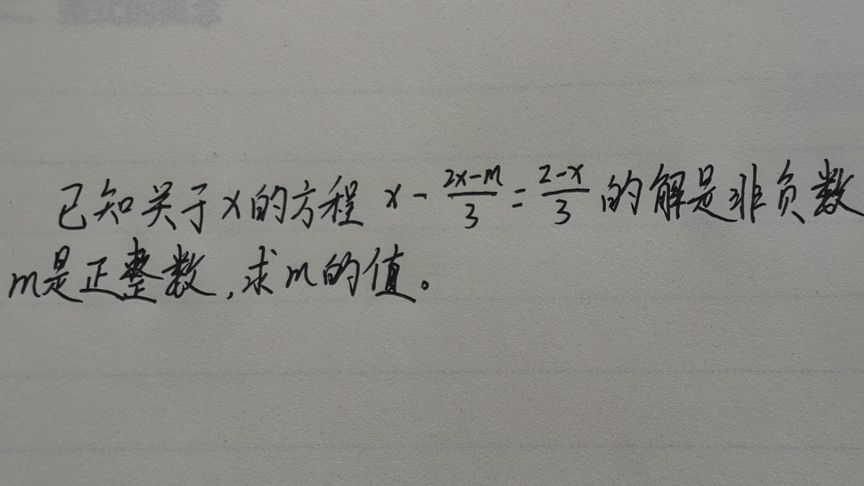 已知关于x的方程 x - \frac{2x-m}{3} = \frac{2-x}{3} 的解是非负数
m是正整数,求m的值。